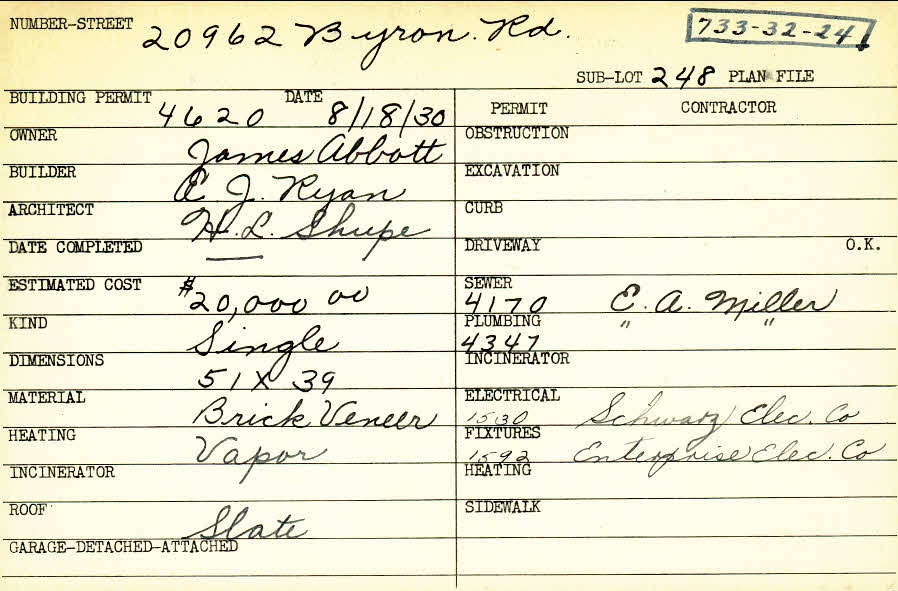 NUMBER-STREET 20962 Byron Rd. 733-32-24
SUB-LOT 248 PLAN FILE
BUILDING PERMIT 4620 DATE 8/18/30
OWNER James Abbott
BUILDER E. J. Ryan
ARCHITECT H. L. Shupe
DATE COMPLETED —
ESTIMATED COST $20,000 00
KIND Single
DIMENSIONS 51 x 39
MATERIAL Brick Veneer
HEATING Vapor
INCINERATOR
ROOF Slate
GARAGE-DETACHED-ATTACHED
PERMIT CONTRACTOR
OBSTRUCTION
EXCAVATION
CURB
DRIVEWAY O.K.
SEWER
4170 E. A. Miller
PLUMBING " "
4347
INCINERATOR
ELECTRICAL
1530 Schwarz Elec. Co
FIXTURES
1592 Enterprise Elec. Co
HEATING
SIDEWALK